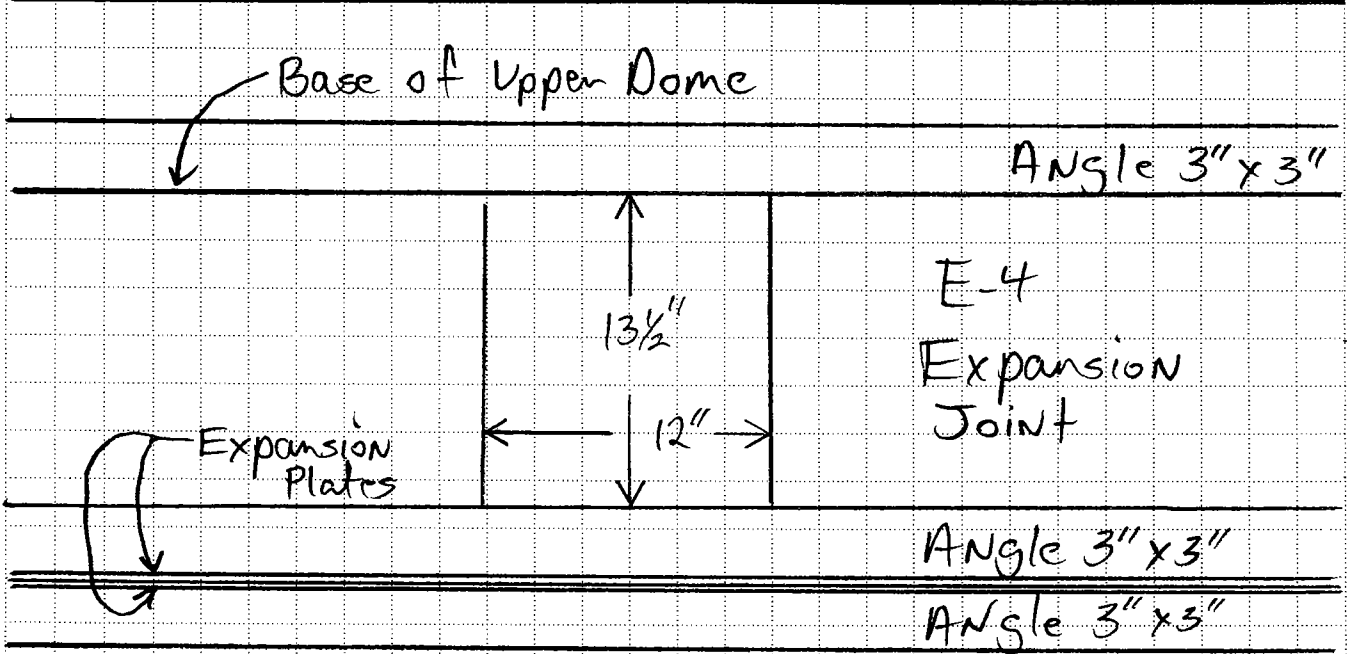 Base of Upper Dome
Angle 3" x 3"
13½"
12"
E-4
Expansion
Joint
Expansion
Plates
Angle 3" x 3"
Angle 3" x 3"